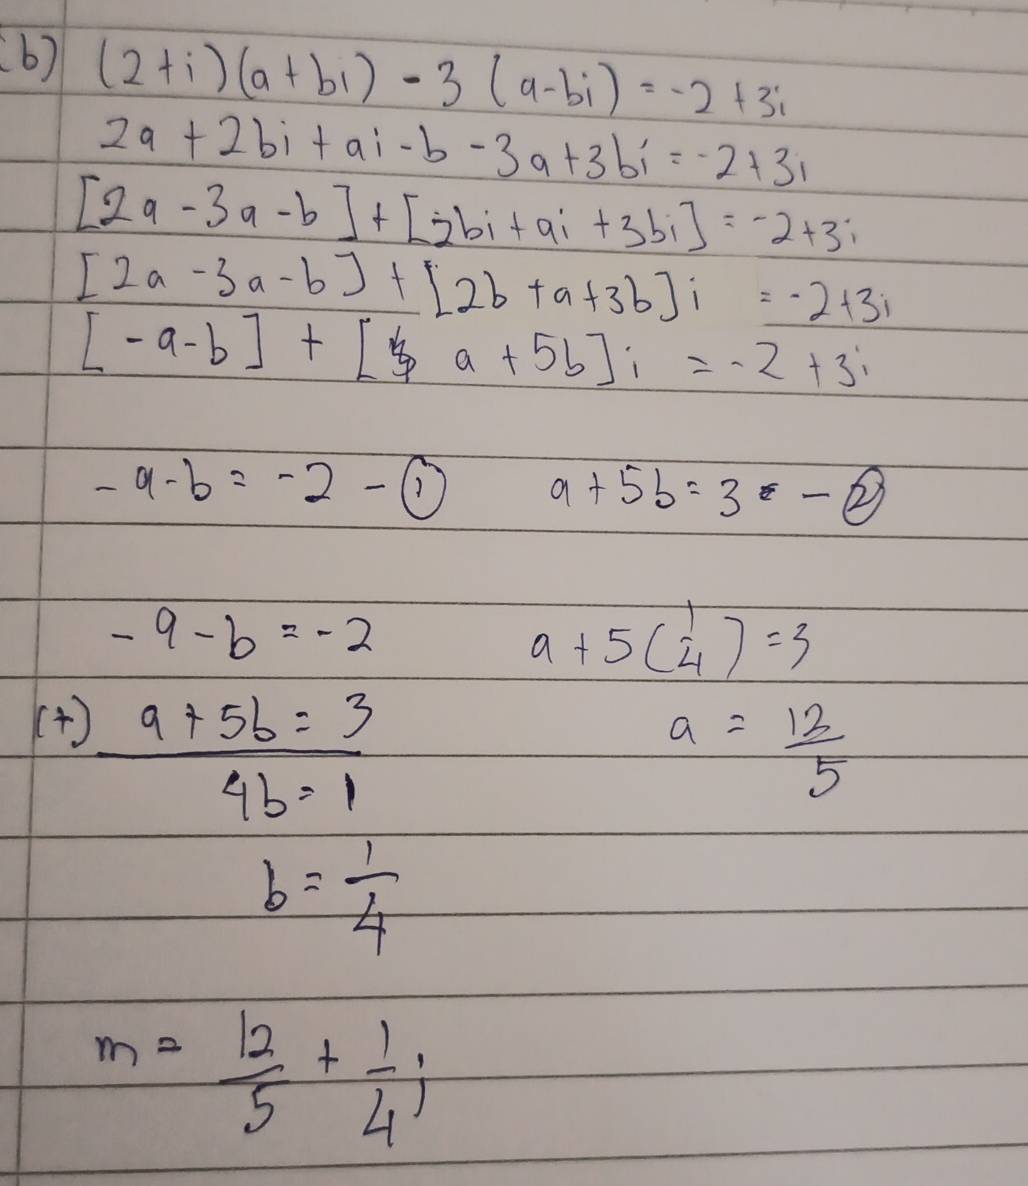 (b) (2+i)(a+bi) - 3(a-bi) = -2+3i
2a + 2bi + ai - b - 3a + 3bi = -2+3i
[2a - 3a - b] + [2bi + ai + 3bi] = -2+3i
[2a - 3a - b] + [2b + a + 3b]i = -2+3i
[-a-b] + [a + 5b]i = -2 + 3i
-a-b = -2 - ① a + 5b = 3 - ②
-a-b = -2 a + 5(1/4) = 3
(+) a + 5b = 3 a = 12/5
4b = 1
b = 1/4
m = 12/5 + 1/4 i